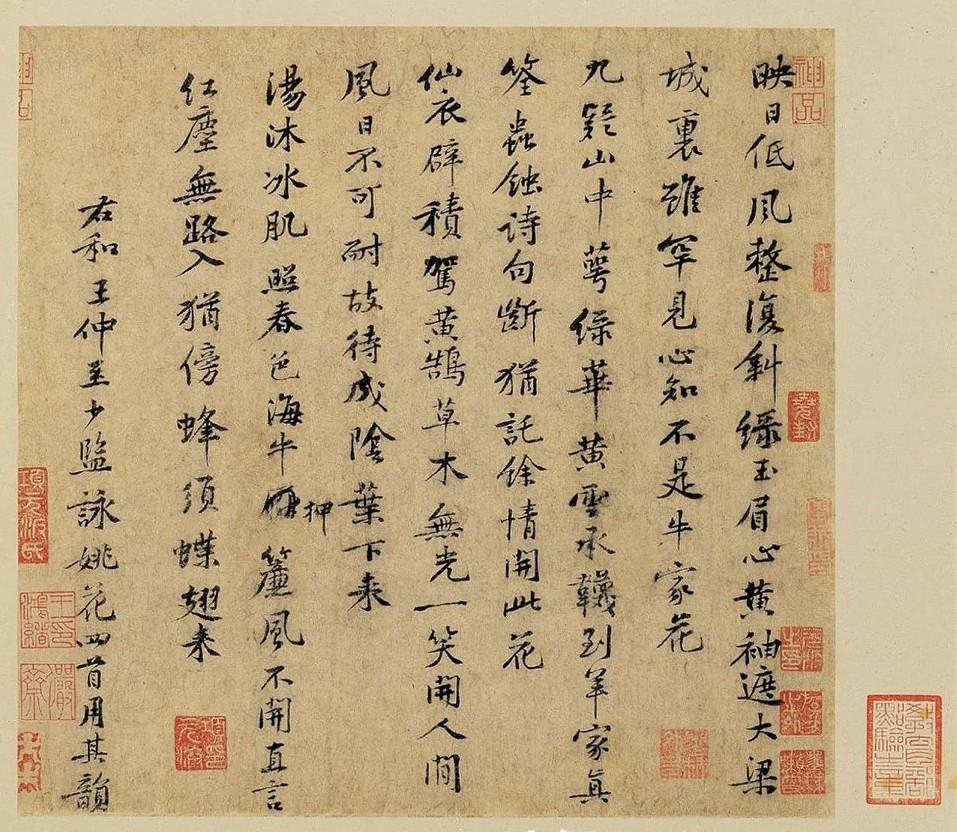 神品
映日低風整復斜綠玉眉心黃袖遮大梁
城裏雖罕見心知不是牛家花
九疑山中萼綠華黃雲承韈到羊家真
筌蟲蝕詩句斷猶託餘情開此花
仙衣辟積駕黃鵠草木無光一笑開人間
風日不可耐故待成陰葉下來
湯沐冰肌照春色海牛押簾風不開直言
紅塵無路入猶傍蜂須蝶翅來
右和王仲至少監詠姚花四首用其韻